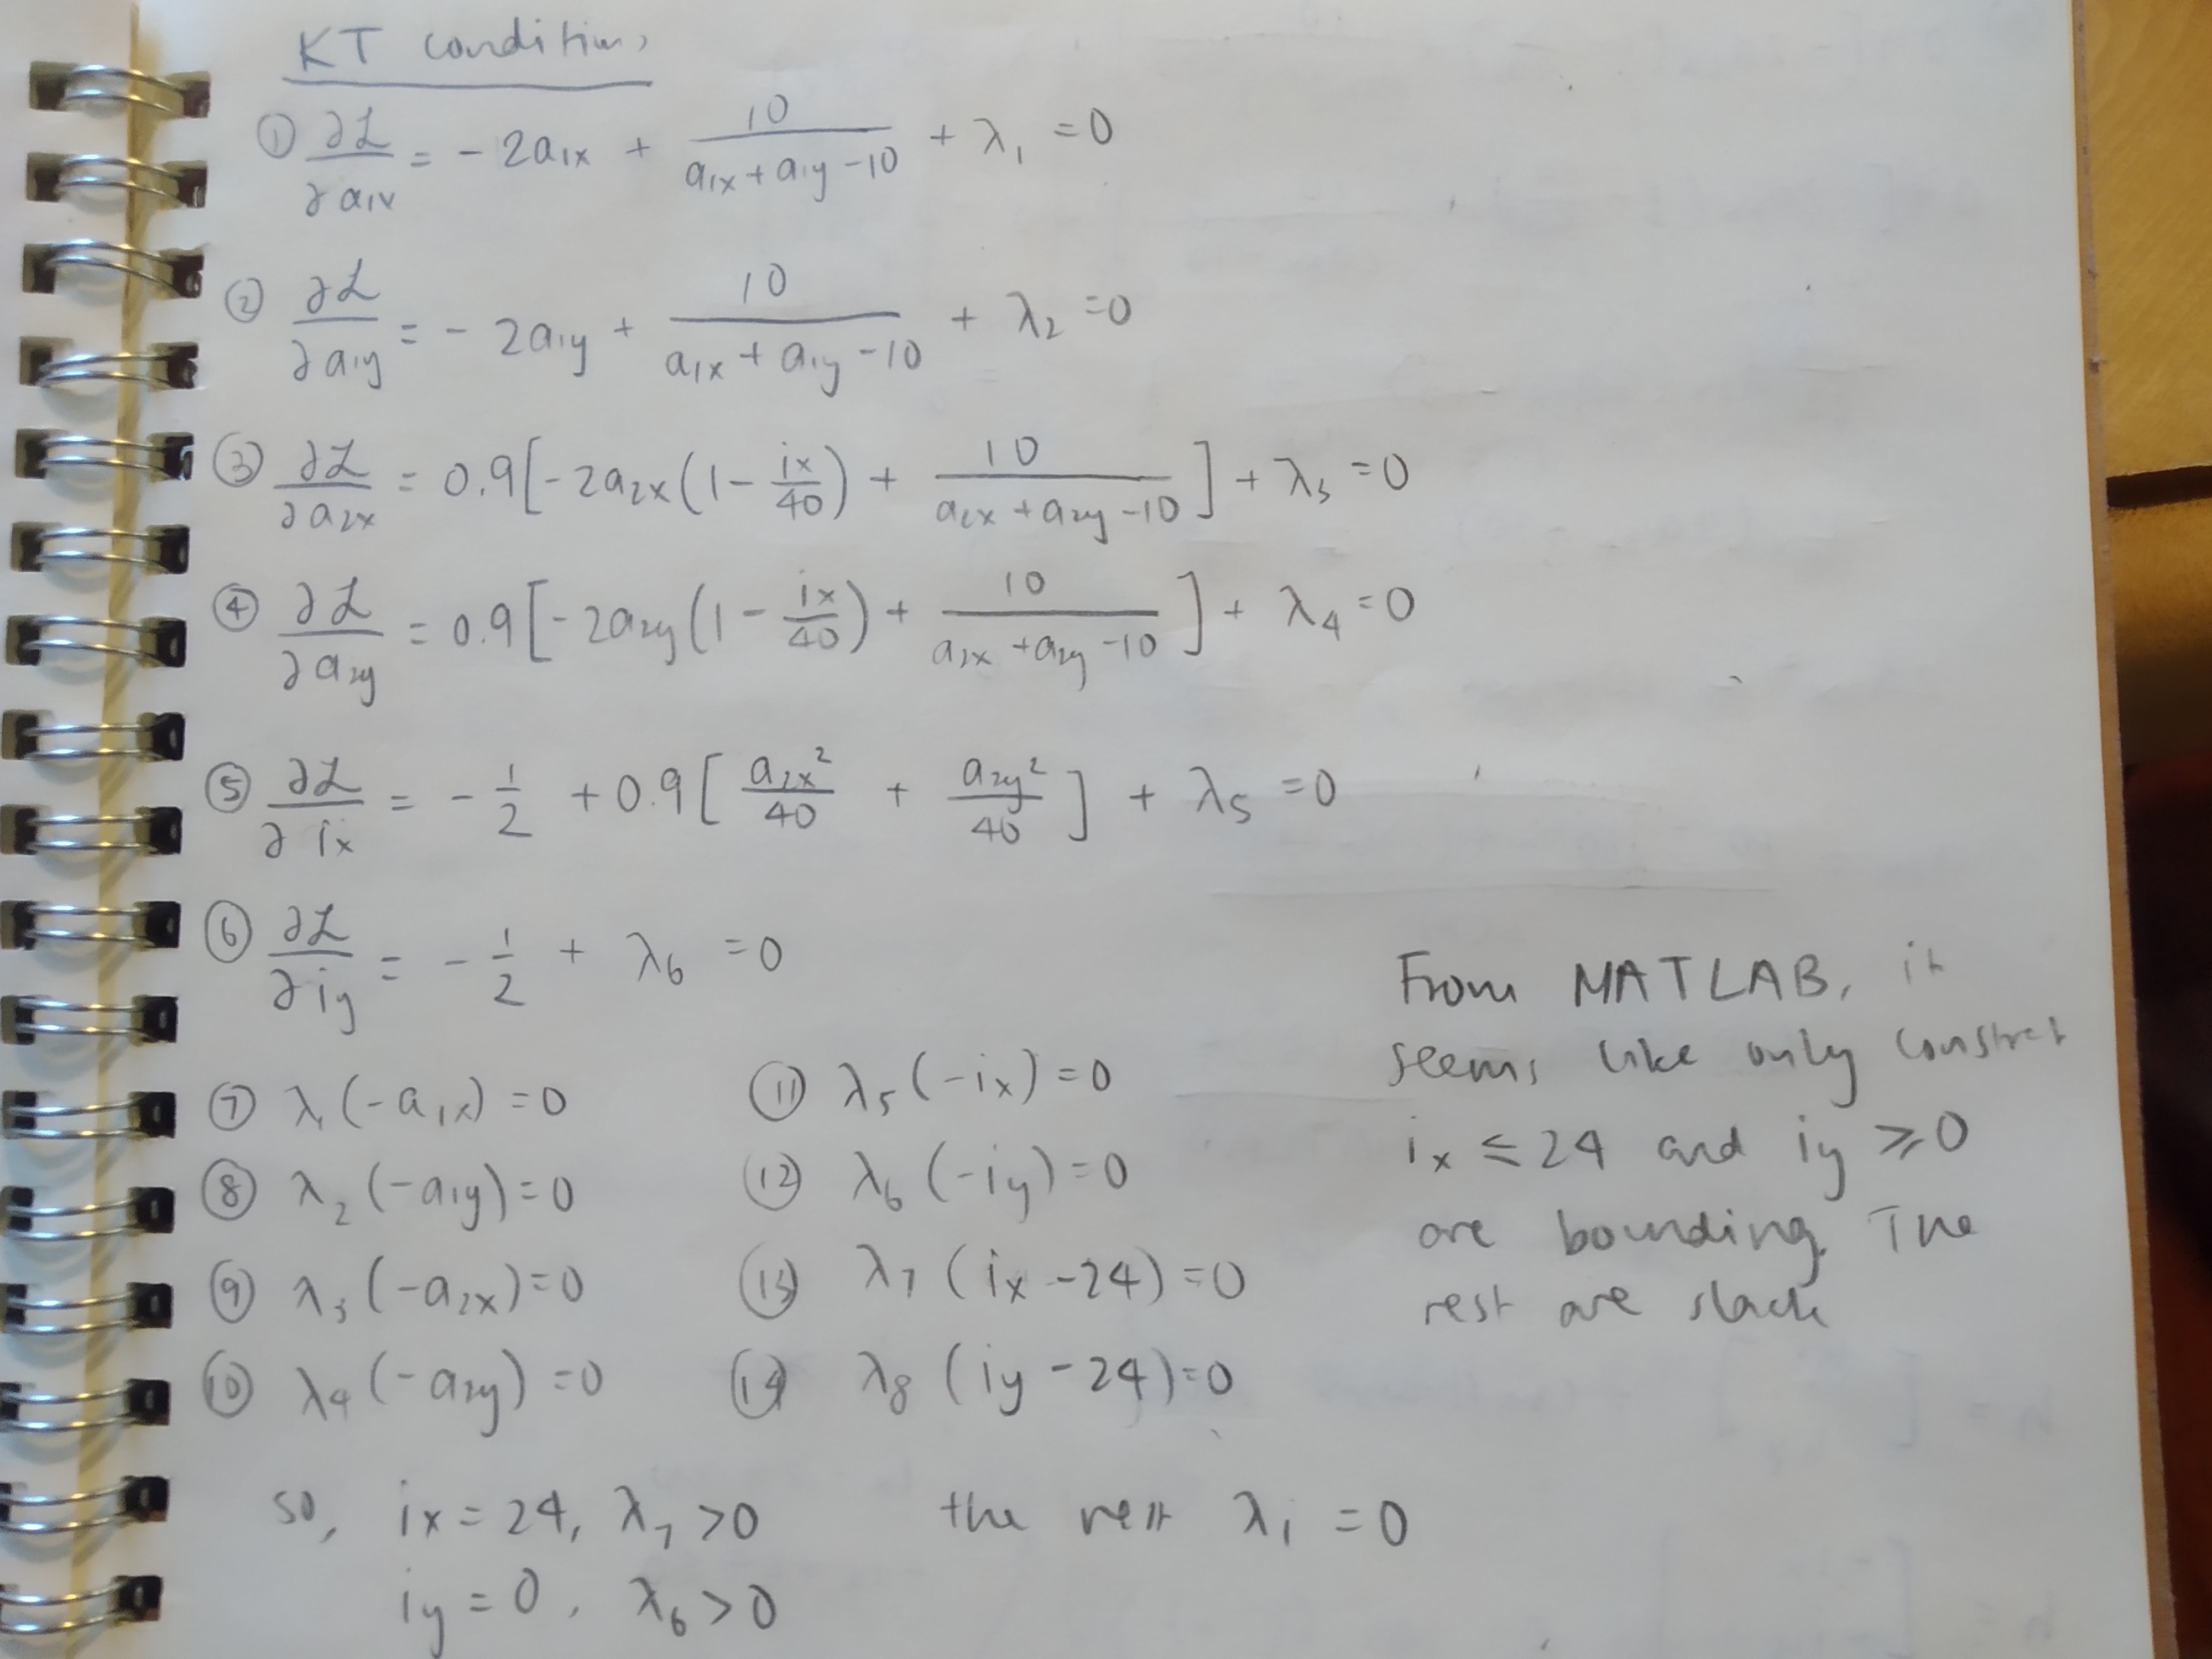 KT conditions
① ∂ℒ/∂a₁ₓ = - 2a₁ₓ + 10/(a₁ₓ + a₁y - 10) + λ₁ = 0
② ∂ℒ/∂a₁y = - 2a₁y + 10/(a₁ₓ + a₁y - 10) + λ₂ = 0
③ ∂ℒ/∂a₂ₓ = 0.9[- 2a₂ₓ(1 - iₓ/40) + 10/(a₂ₓ + a₂y - 10)] + λ₃ = 0
④ ∂ℒ/∂a₂y = 0.9[- 2a₂y(1 - iₓ/40) + 10/(a₂ₓ + a₂y - 10)] + λ₄ = 0
⑤ ∂ℒ/∂iₓ = - 1/2 + 0.9[a₂ₓ²/40 + a₂y²/40] + λ₅ = 0
⑥ ∂ℒ/∂iy = - 1/2 + λ₆ = 0
⑦ λ₁(-a₁ₓ) = 0
⑧ λ₂(-a₁y) = 0
⑨ λ₃(-a₂ₓ) = 0
⑩ λ₄(-a₂y) = 0
⑪ λ₅(-iₓ) = 0
⑫ λ₆(-iy) = 0
⑬ λ₇(iₓ - 24) = 0
⑭ λ₈(iy - 24) = 0
From MATLAB, it
seems like only
iₓ ≤ 24 and iy ≥ 0
are bounding. The
rest are slack
so, iₓ = 24, λ₇ > 0 the rest λᵢ = 0
iy = 0, λ₆ > 0